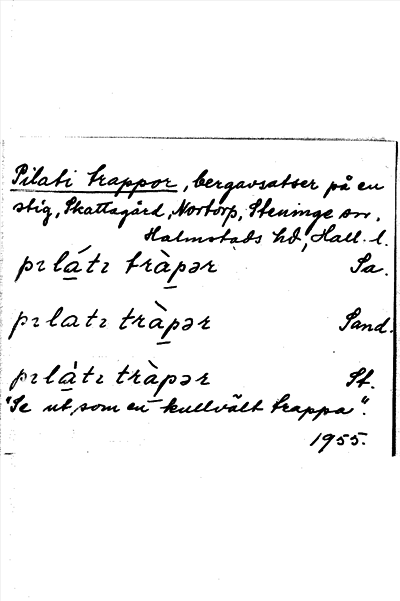 Pilati trappor, bergavsatser på en
stig, Skattagård, Nortorp, Steninge sn,
Halmstads hd, Hall. l.
pɪlátɪ tràpər Sa.
pɪlatɪ tràpər Sand.
pɪlátɪ tràpər St.
"Se ut som en kullvält trappa".
1955.